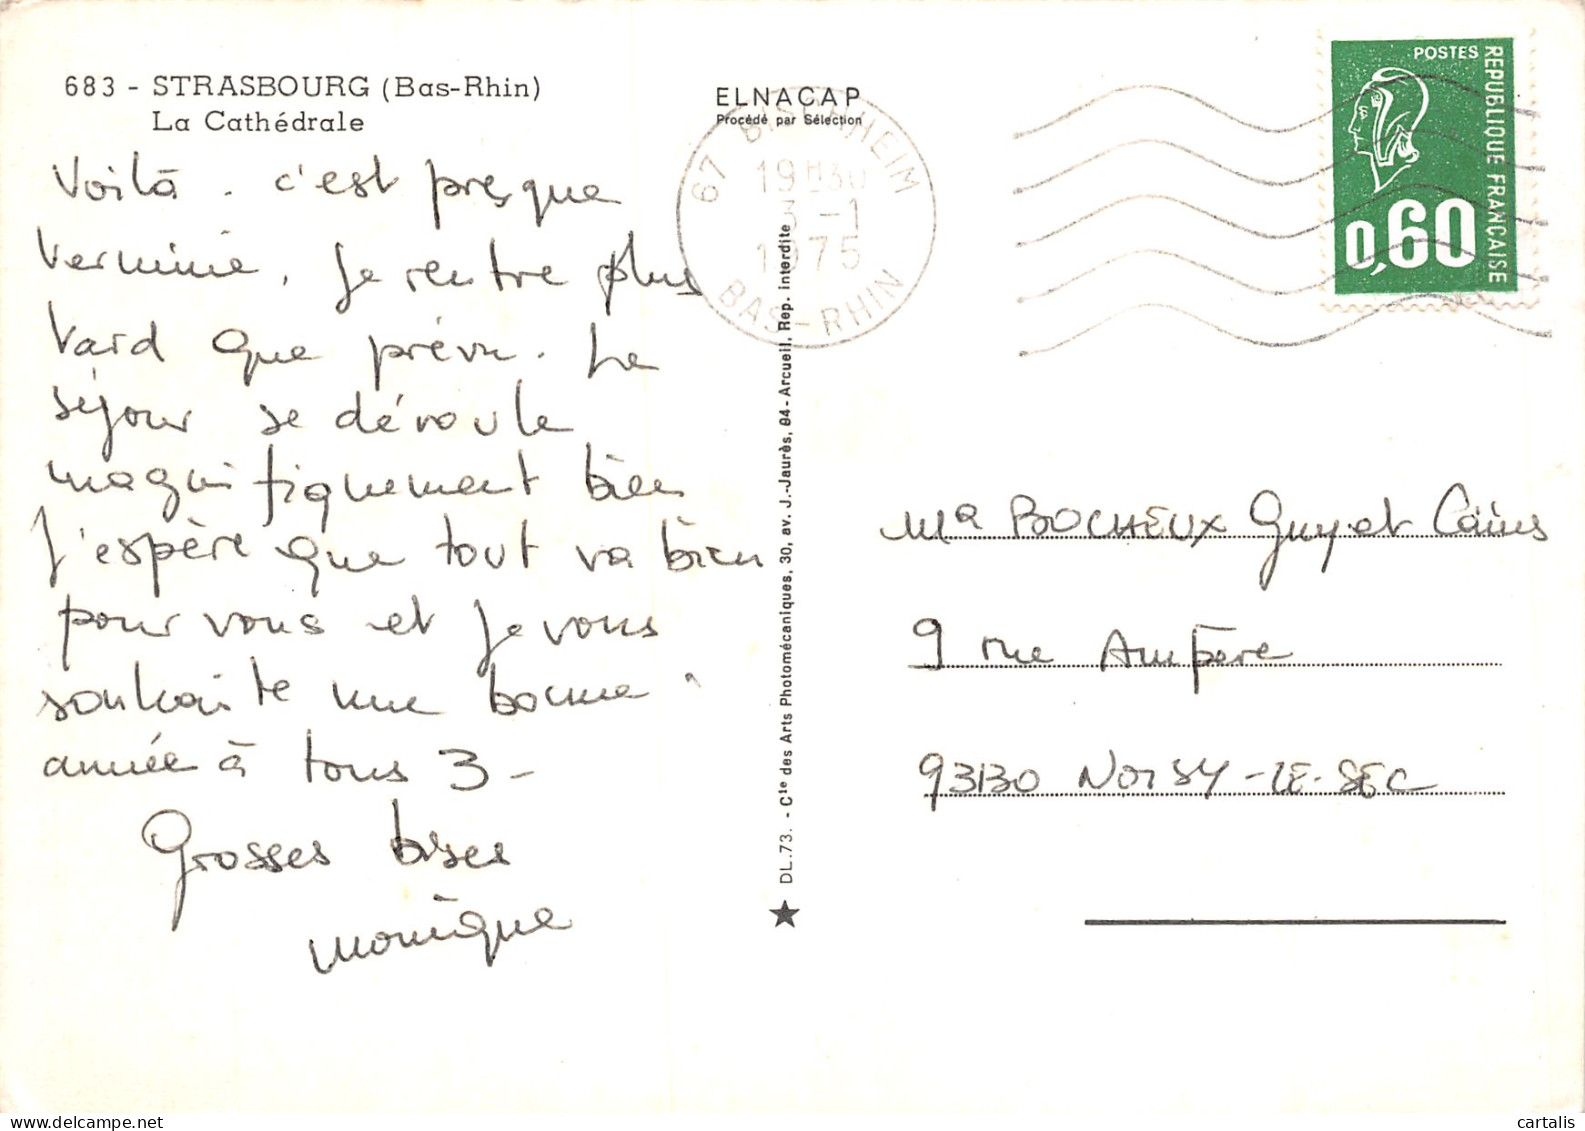 683 - STRASBOURG (Bas-Rhin)
La Cathédrale
Voilà. c'est presque
terminé. Je rentre plus
tard que prévu. Le
séjour se déroule
magnifiquement bien
J'espère que tout va bien
pour vous et je vous
souhaite une bonne
année à tous 3 -
Grosses bises
Monique
ELNACAP
Procédé par Sélection
67 BISCHHEIM
19H30
3 -1
1975
BAS-RHIN
DL.73. - Cie des Arts Photomécaniques, 30, av. J.-Jaurès, 94 - Arcueil, Rep. interdite
POSTES
REPUBLIQUE FRANÇAISE
0,60
BOCHEUX Guy et
9 rue Ampère
93130 NOISY-LE-SEC
cartalis